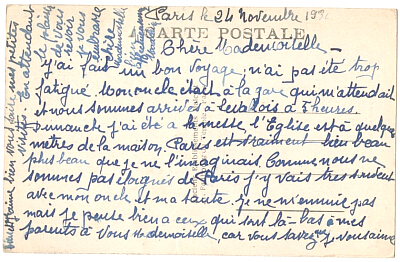 Paris le 24 novembre 193
CARTE POSTALE
Chère Mademoiselle -
j'ai fait un bon voyage, n'ai pas été trop
fatigué. Mon oncle était à la gare qui m'attendait
et nous sommes arrivés à levallois à 7 heures.
Dimanche j'ai été a la messe, l'Eglise est à quelque
mètres de la maison. Paris est vraiment bien beau
plus beau que je ne l'imaginais. Comme nous ne
sommes pas éloignés de Paris j'y vais très souvent
avec mon oncle et ma tante. je ne m'ennuie pas
mais je pense bien a ceux qui sont là-bas à mes
parents à Vous Mademoiselle, car vous savez que je vous aime
bien vous faire mes petites
visites. En attendant
le plaisir
de vous
revoir
je vous
embrasse
chère
Mademoiselle